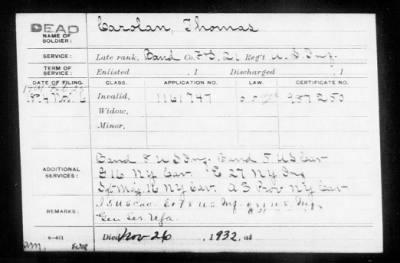 DEAD
NAME OF SOLDIER: Carolan, Thomas
SERVICE: Late rank, Band Co. F.S. 21 Reg't U.S. Inf.
TERM OF SERVICE: Enlisted , 1 Discharged , 1
DATE OF FILING. CLASS. APPLICATION NO. LAW. CERTIFICATE NO.
Nov. 6 Invalid, 1161747 957250
Widow,
Minor,
ADDITIONAL SERVICES: Band 8 U.S. Inf. Band 5 U.S. Cav.
G 16 N.Y. Cav. E 27 N.Y. Inf.
16 N.Y. Cav. A 3 Prov. N.Y. Cav.
REMARKS:
Gen. Ser. U.S.A.
Died Nov. 26 , 1932, at